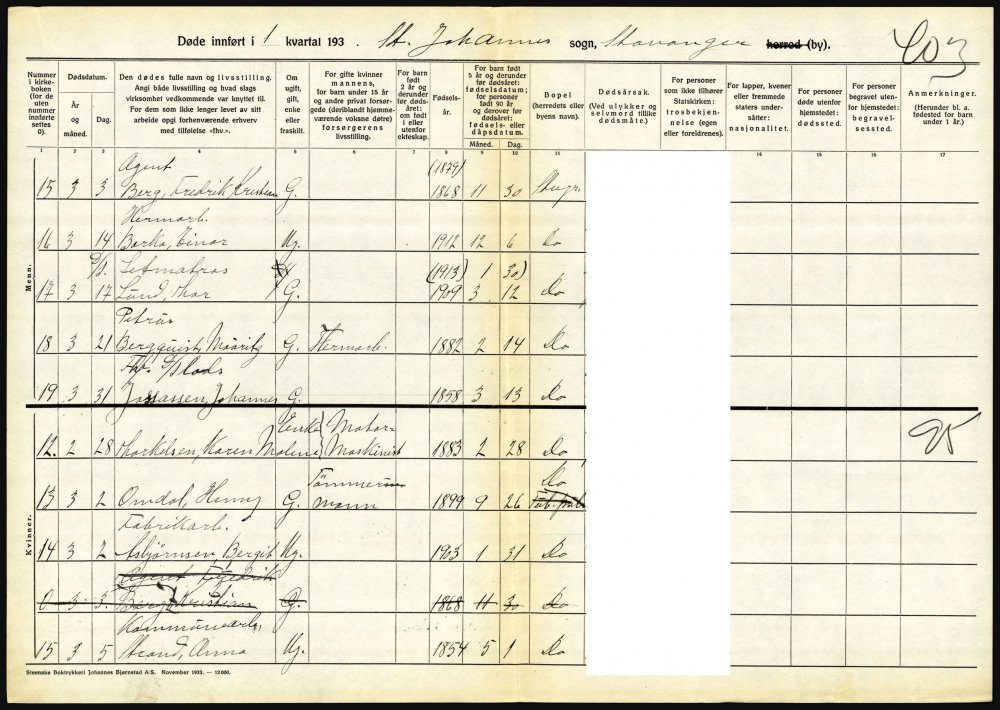 Døde innført i 1 kvartal 193 . St. Johannes sogn, Stavanger herred (by).
403
Nummer i kirkeboken (for de uten nummer innførte settes 0).
Dødsdatum.
År og måned.
Dag.
Den dødes fulle navn og livsstilling. Angi både livsstilling og hvad slags virksomhet vedkommende var knyttet til. For dem som ikke lenger levet av sitt arbeide opgi forhenværende erhverv med tilføielse «fhv.».
Om ugift, gift, enke eller fraskilt.
For gifte kvinner mannens, for barn under 15 år og andre privat forsørgede (deriblandt hjemmeværende voksne døtre) forsørgerens livsstilling.
For barn født 2 år og derunder før dødsåret: om født i eller utenfor ekteskap.
Fødselsår.
For barn født 5 år og derunder før dødsåret: fødselsdatum; for personer født 90 år og derover før dødsåret: fødsels- eller dåpsdatum.
Måned.
Dag.
Bopel (herredets eller byens navn).
Dødsårsak. (Ved ulykker og selvmord tillike dødsmåte.)
For personer som ikke tilhører Statskirken: trosbekjennelse (egen eller foreldrenes).
For lapper, kvener eller fremmede staters undersåtter: nasjonalitet.
For personer døde utenfor hjemstedet: dødssted.
For personer begravet utenfor hjemstedet: begravelsessted.
Anmerkninger. (Herunder bl. a. fødested for barn under 1 år.)
1 2 3 4 5 6 7 8 9 10 11 14 15 16 17
Menn.
Agent (1879)
15 3 3 Berg, Fredrik Kristian G. 1868 11 30 Stvgr.
Hermarb.
16 3 14 Barka, Einar Ug. 1912 12 6 Do
Letmatros (1913) 1 30)
17 3 17 Lund, Thor G. 1909 3 12 Do
Petrus
18 3 21 Bergquist, Mauritz G. Hermarb. 1882 2 14 Do
Fhv.
19 3 31 Jossassen, Johannes G. 1858 3 13 Do
Kvinner.
Enke Motor-
12. 2 28 Thorkelsen, Karen Malene Maskinist 1883 2 28 Do
95
Tömmer- Do
13 3 2 Omdal, Henny G. mann 1899 9 26
Fabrikarb.
14 3 2 Asbjørnsen, Bergit Ug. 1903 1 31 Do
Agent Fredrik
0 3 3. Berg, Kristian G. 1868 11 30 Do
Kommunearb.
15 3 5 Strand, Anna Ug. 1854 5 1 Do
Steenske Boktrykkeri Johannes Bjørnstad A/S. November 1933. — 12000.